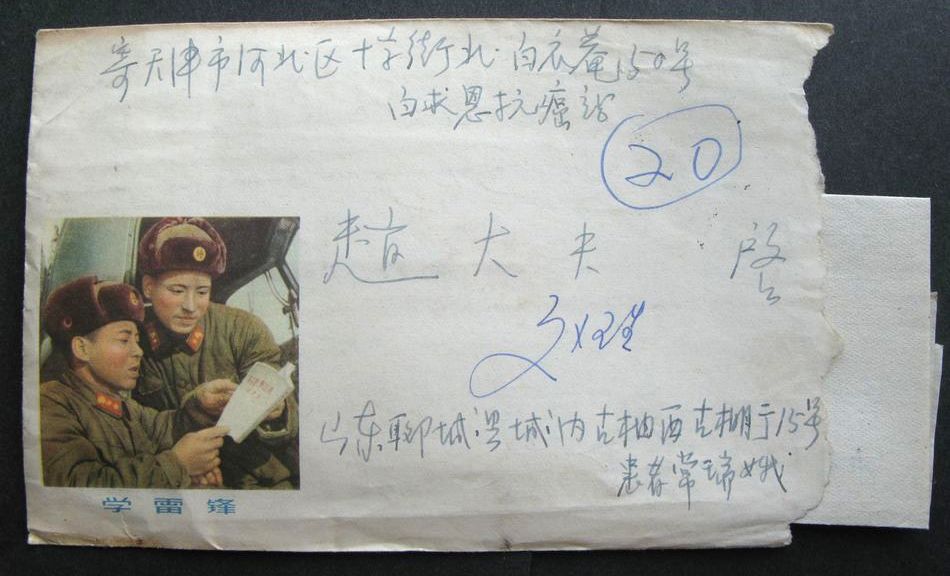 寄天津市河北区十字街北白衣庵150号
白求恩抗癌站
20
赵大夫 启
山东聊城县城内古楼西古棚子15号
患者常瑞娥
学雷锋